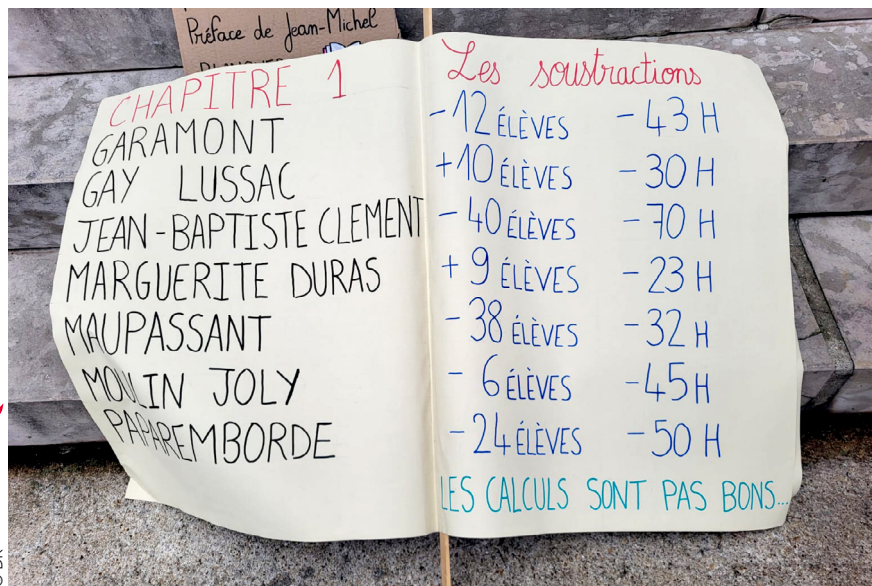 Préface de Jean-Michel
CHAPITRE 1
GARAMONT
GAY LUSSAC
JEAN-BAPTISTE CLEMENT
MARGUERITE DURAS
MAUPASSANT
MOULIN JOLY
PAPAREMBORDE
Les soustractions
-12 ÉLÈVES -43 H
+10 ÉLÈVES -30 H
-40 ÉLÈVES -70 H
+9 ÉLÈVES -23 H
-38 ÉLÈVES -32 H
-6 ÉLÈVES -45 H
-24 ÉLÈVES -50 H
LES CALCULS SONT PAS BONS...